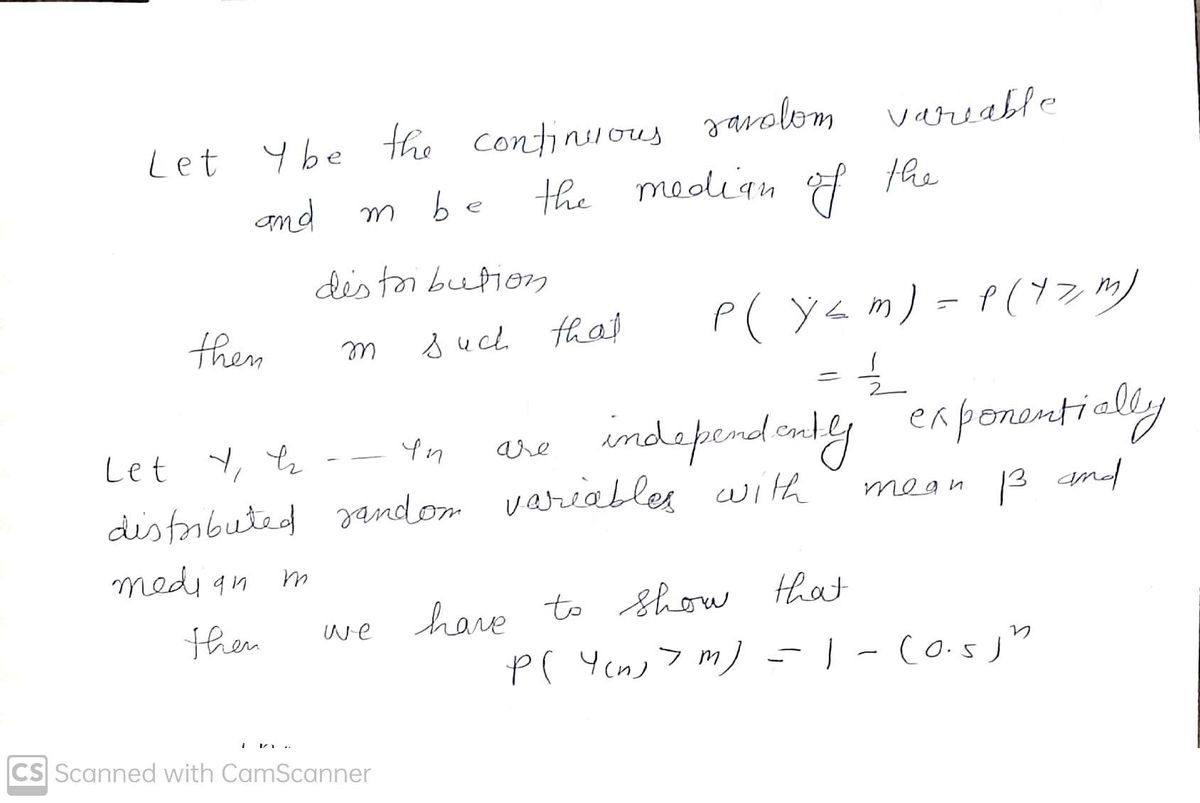 Let Y be the continuous random variable
and m be the median of the
distribution
then m such that P( Y ≤ m) = P(Y ≥ m)
= 1/2
Let Y₁ Y₂ --- Yn are independently exponentially
distributed random variables with mean β and
median m
then we have to show that
P( Y(n) > m) = 1 - (0.5)ⁿ
CS Scanned with CamScanner